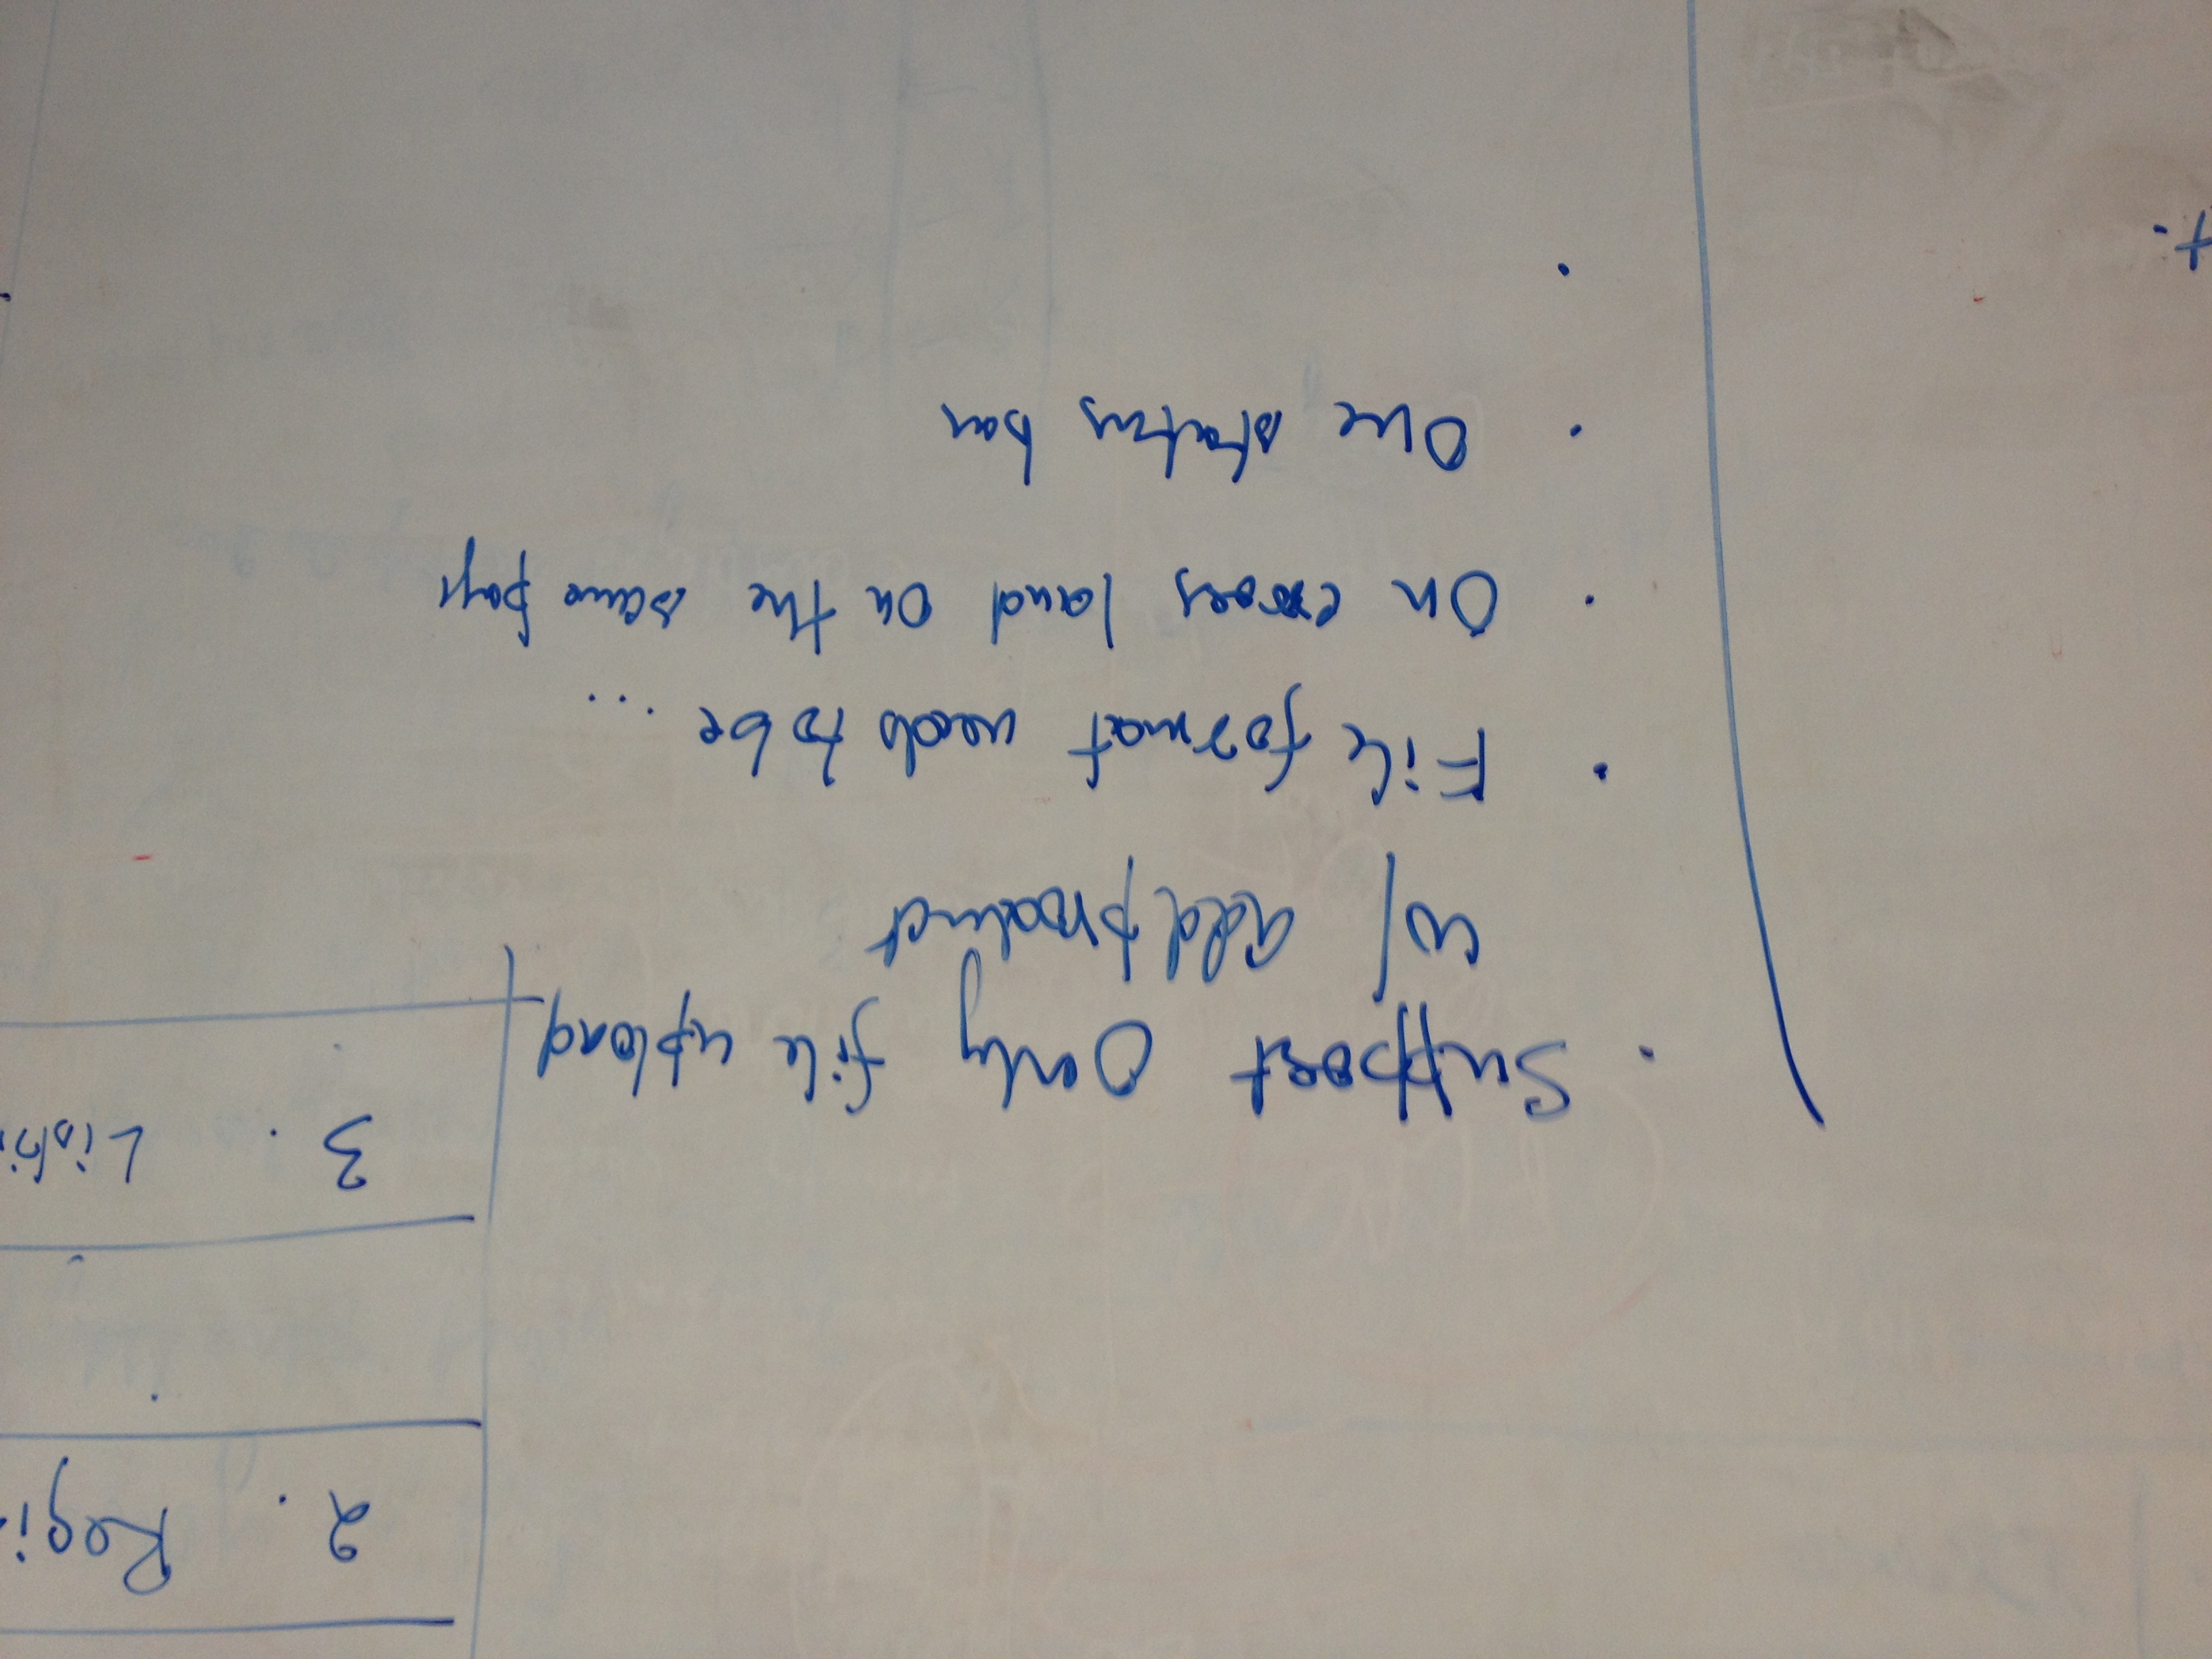 2. Regi
3. Listi
. Support Only file upload
w/ add product
. File format needs to be ...
. On errors land on the same page
. One status bar
.
t.